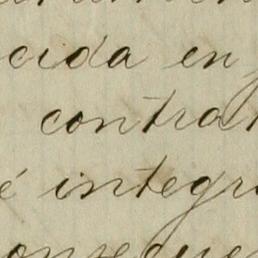 cida en
contra
é integr
onsecue